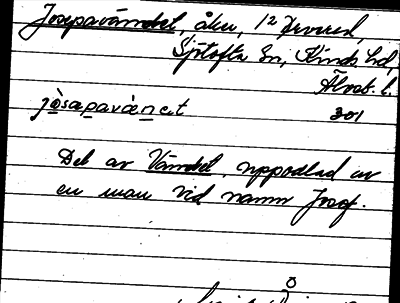 Josepavändet, åker, 12 Everred,
Sjötofta Sn, Kinds hd,
Älvsb. l.
jòsapavæ̀ncit 301
Del av Vändet, uppodlad av
en man vid namn Josef.